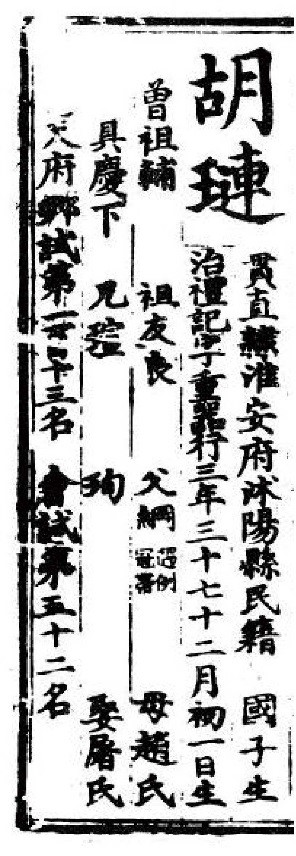 胡璉
貫直隸淮安府沭陽縣民籍 國子生
治禮記字重器行三年三十七十二月初一日生
曾祖輔 祖友良 父綱 遇例冠帶 母趙氏
具慶下 兄瑄 珣 娶屠氏
天府鄉試第一百十三名 會試第五十二名